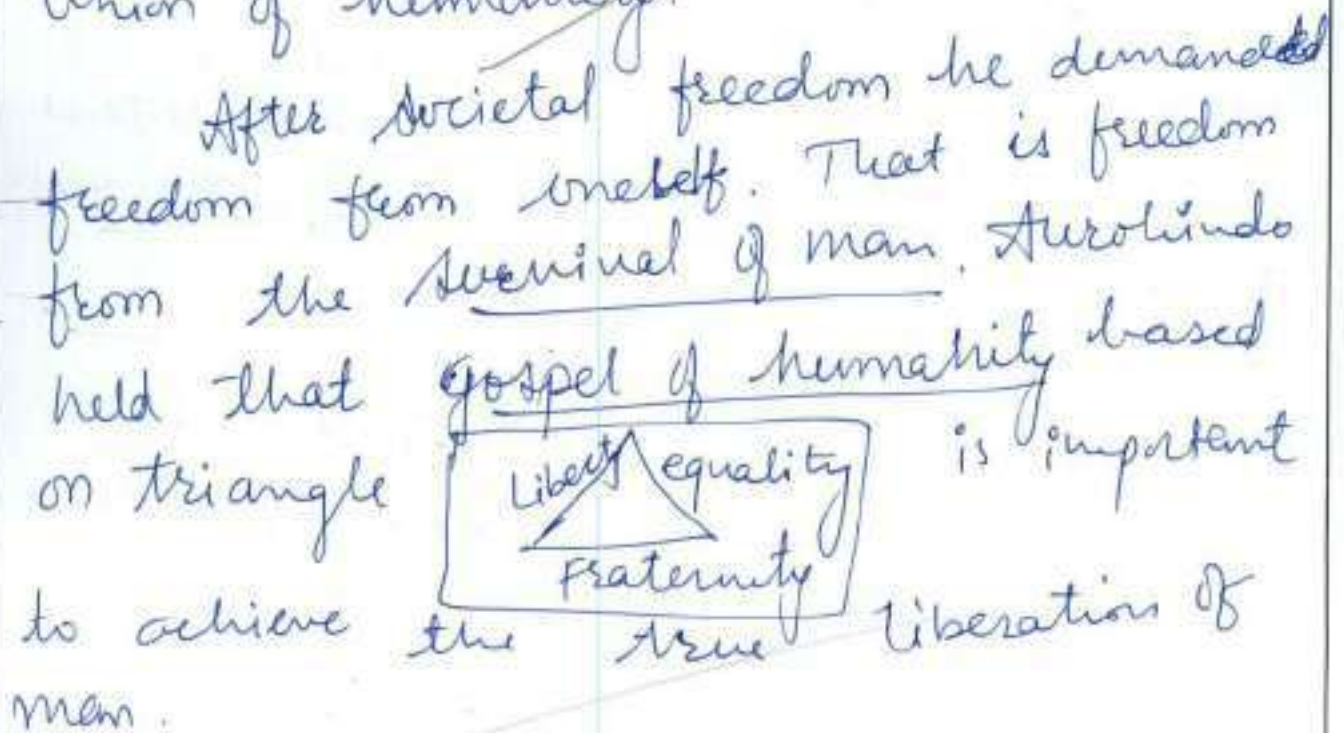 Union of humanity.
After societal freedom he demanded
freedom from oneself. That is freedom
from the survival of man. Aurobindo
held that gospel of humanity based
on triangle Liberty equality is important
Fraternity
to achieve the true liberation of
man.